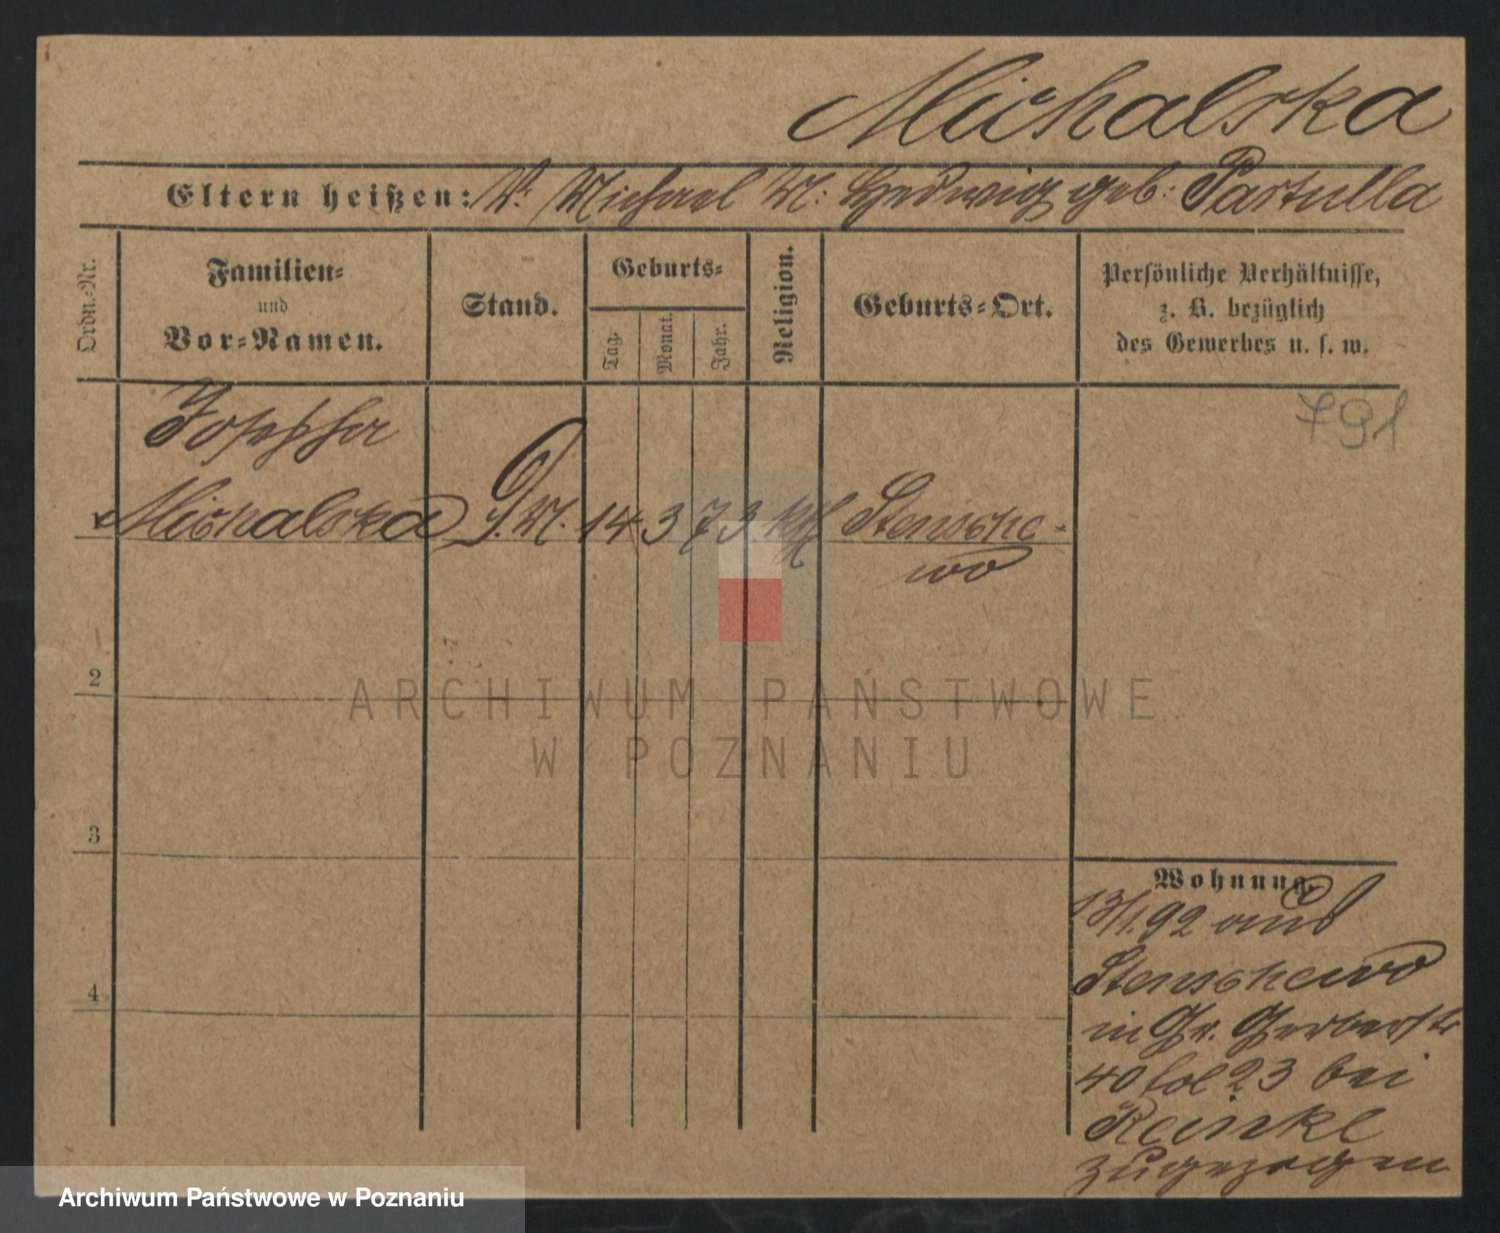 Michalska
Eltern heißen: V. Michael M. Hedwig geb. Partulla
Ordn.-Nr.
Familien-
und
Vor-Namen.
Stand.
Geburts-
Tag.
Monat.
Jahr.
Religion.
Geburts-Ort.
Persönliche Verhältnisse,
z. B. bezüglich
des Gewerbes u. s. w.
791
Josepha
1 Michalska D. M. 14 3 73 kth Stensche-
wo
2
3
4
Wohnung.
13/1. 92 aus
Stenschewo
in Gr. Gerberstr
40 fol 23 bei
Reinke
zugezogen
ARCHIWUM PAŃSTWOWE
W POZNANIU
Archiwum Państwowe w Poznaniu